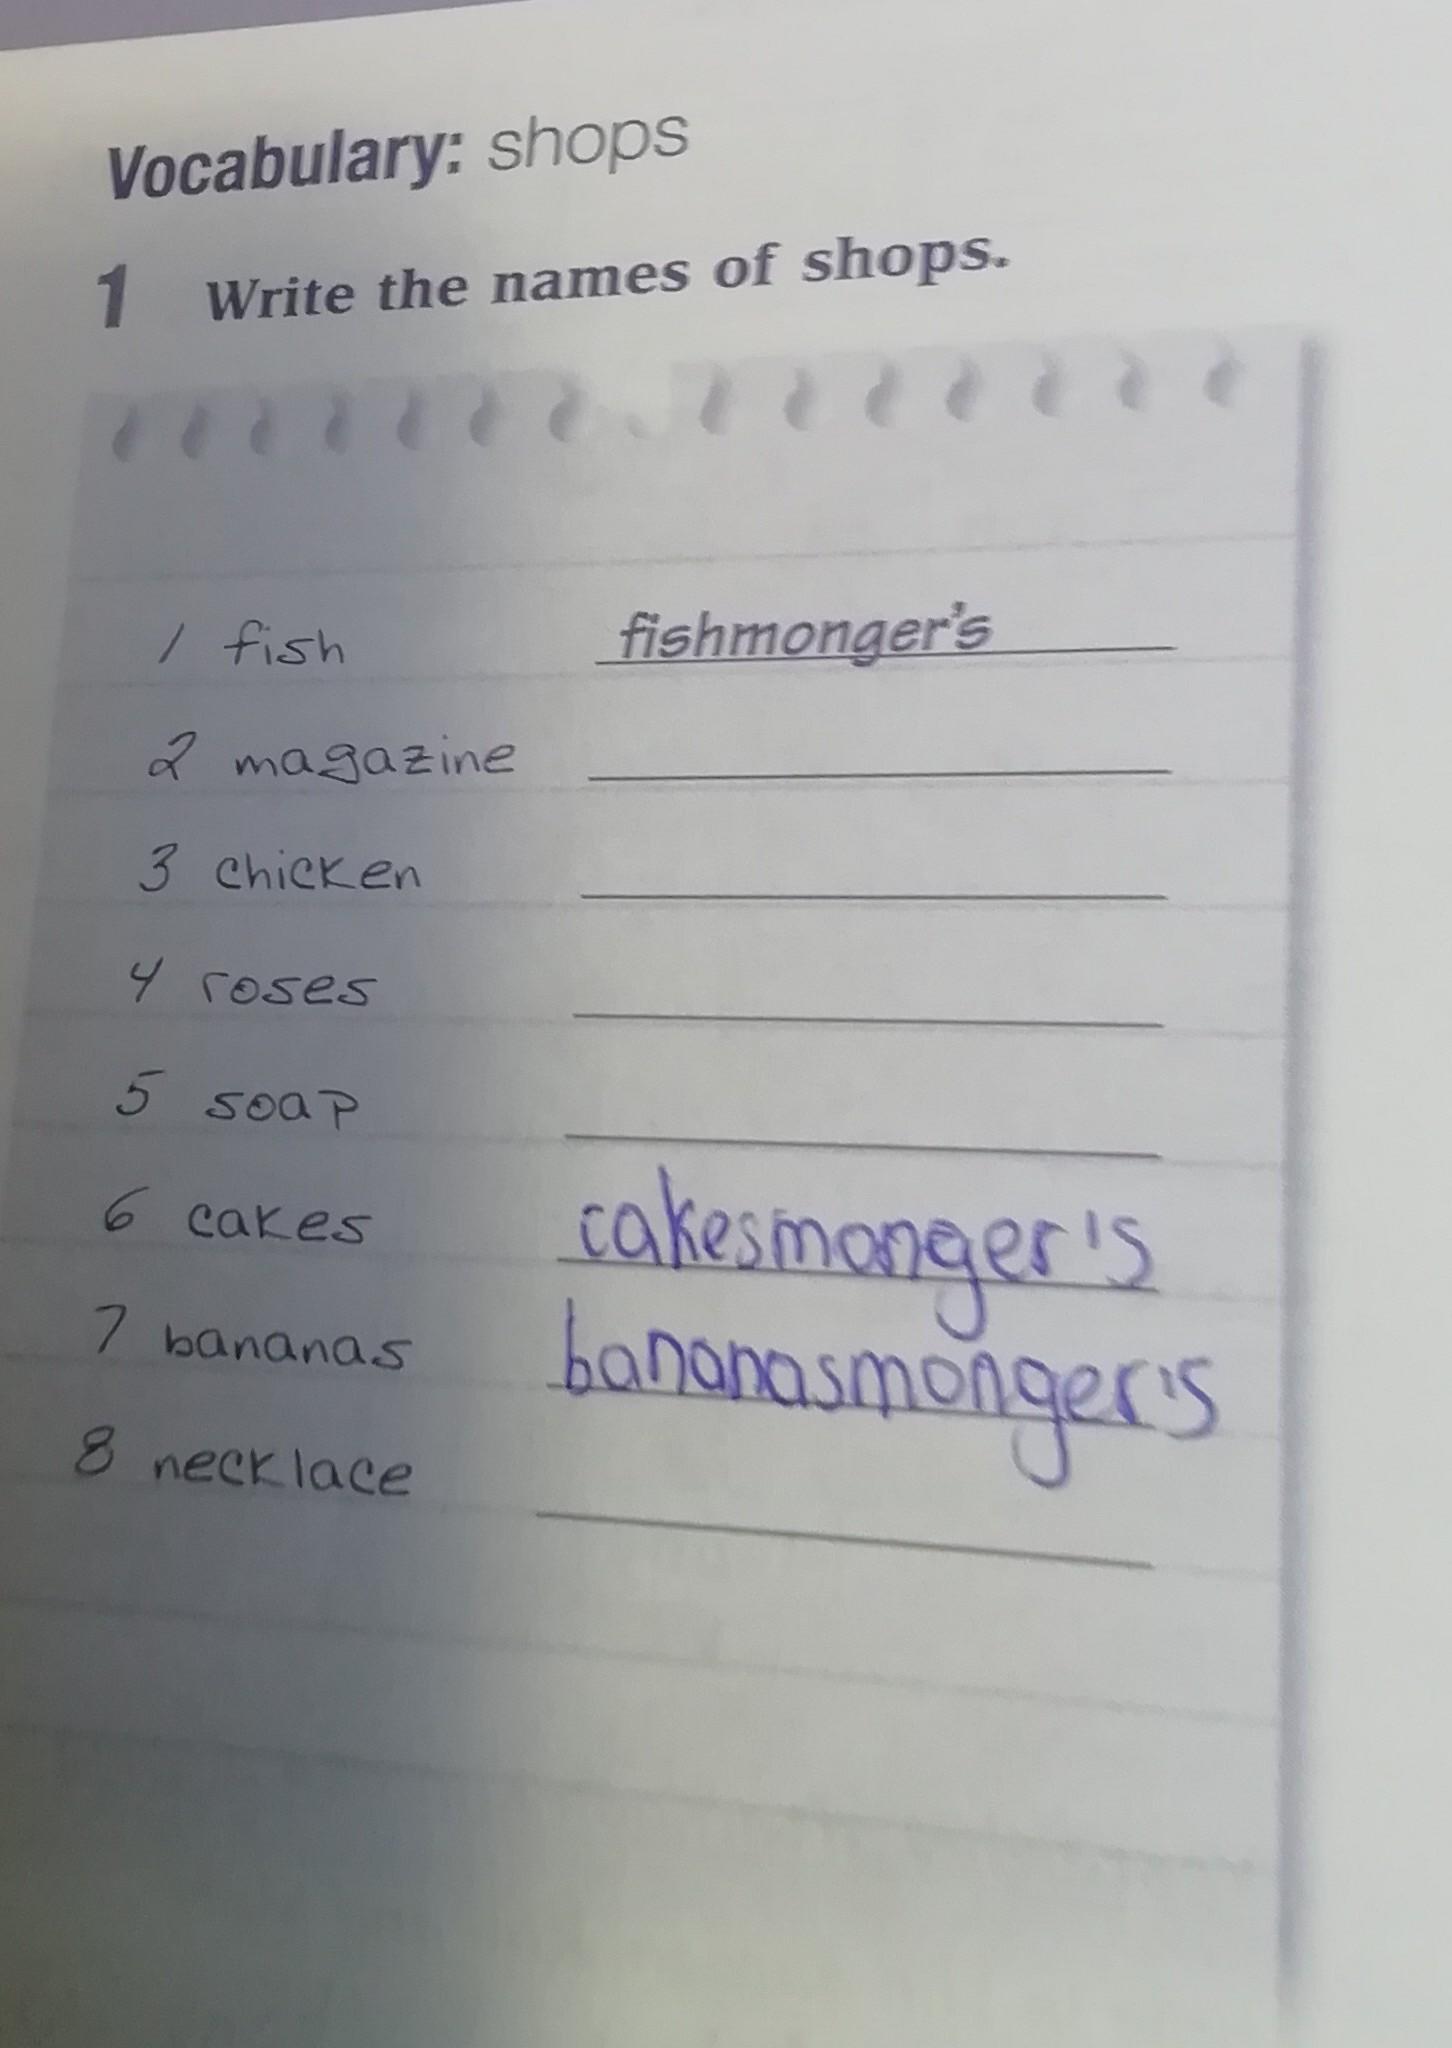 Vocabulary: shops
1 Write the names of shops.
1 fish fishmonger's
2 magazine
3 chicken
4 roses
5 soap
6 cakes cakesmonger's
7 bananas bananasmonger's
8 necklace